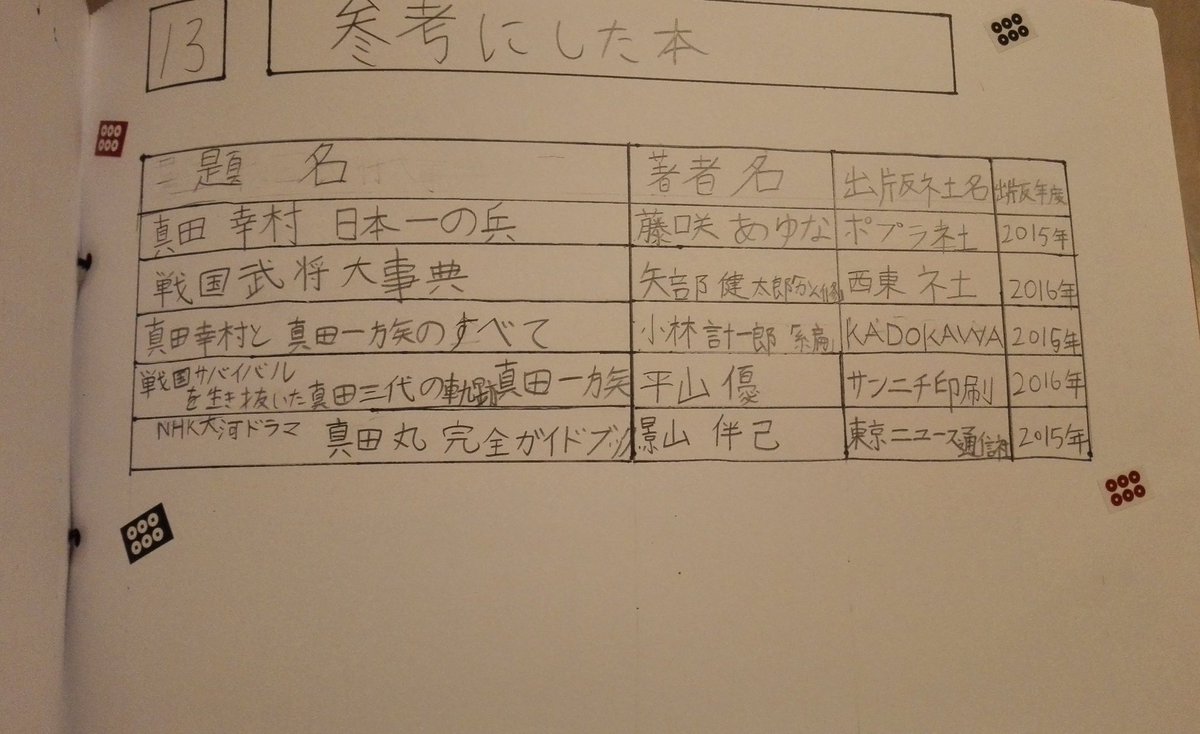 13 参考にした本
題名 著者名 出版社名 出版年度
真田幸村 日本一の兵 藤咲あゆな ポプラ社 2015年
戦国武将大事典 矢部健太郎 監修 西東社 2016年
真田幸村と真田一族のすべて 小林計一郎 編 KADOKAWA 2015年
戦国サバイバルを生き抜いた真田三代の軌跡 真田一族 平山優 サンニチ印刷 2016年
NHK大河ドラマ 真田丸 完全ガイドブック 影山伴己 東京ニュース通信社 2015年